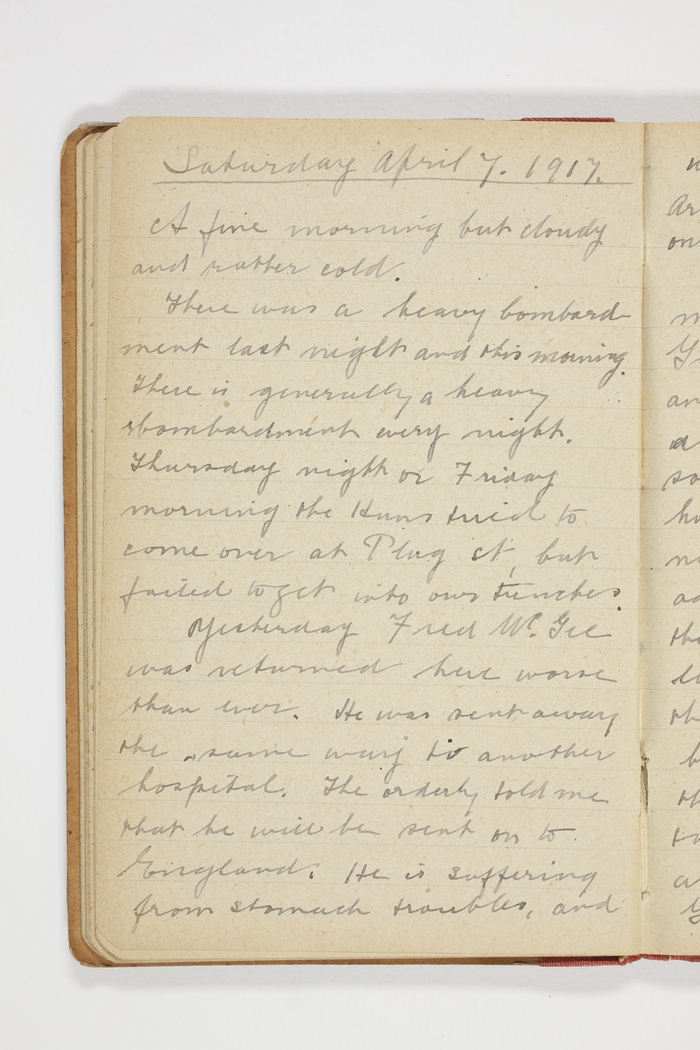 Saturday April 7. 1917.
A fine morning but cloudy
and rather cold.
There was a heavy bombard-
ment last night and this morning.
There is generally a heavy
bombardment every night.
Thursday night or Friday
morning the Huns tried to
come over at Plug St, but
failed to get into our trenches.
Yesterday Fred Mc. Gee
was returned here worse
than ever. He was sent away
the same way to another
hospital. The orderly told me
that he will be sent on to
England. He is suffering
from stomach troubles, and